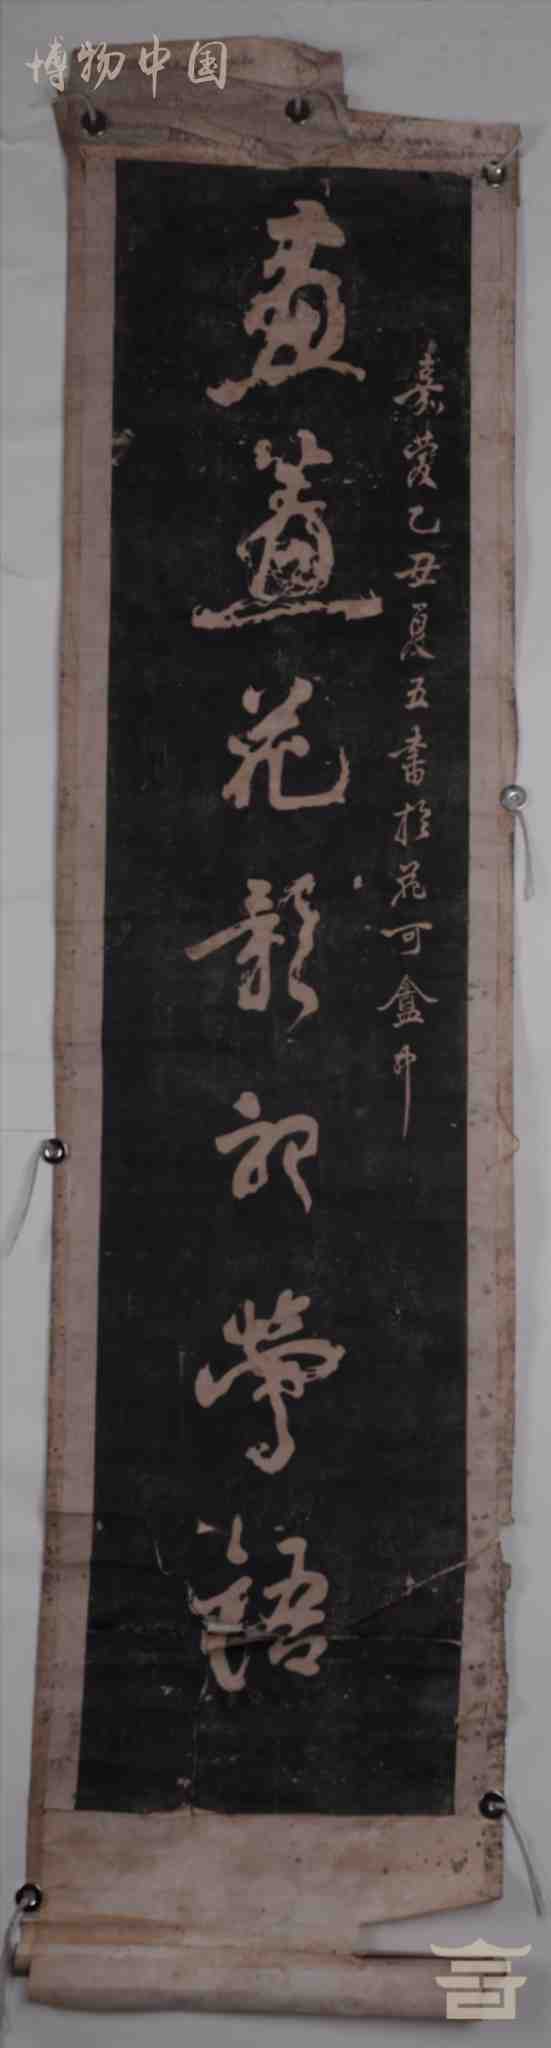 博物中国
嘉慶乙丑夏五書於花可盦中
畫蓋花影初鶯語